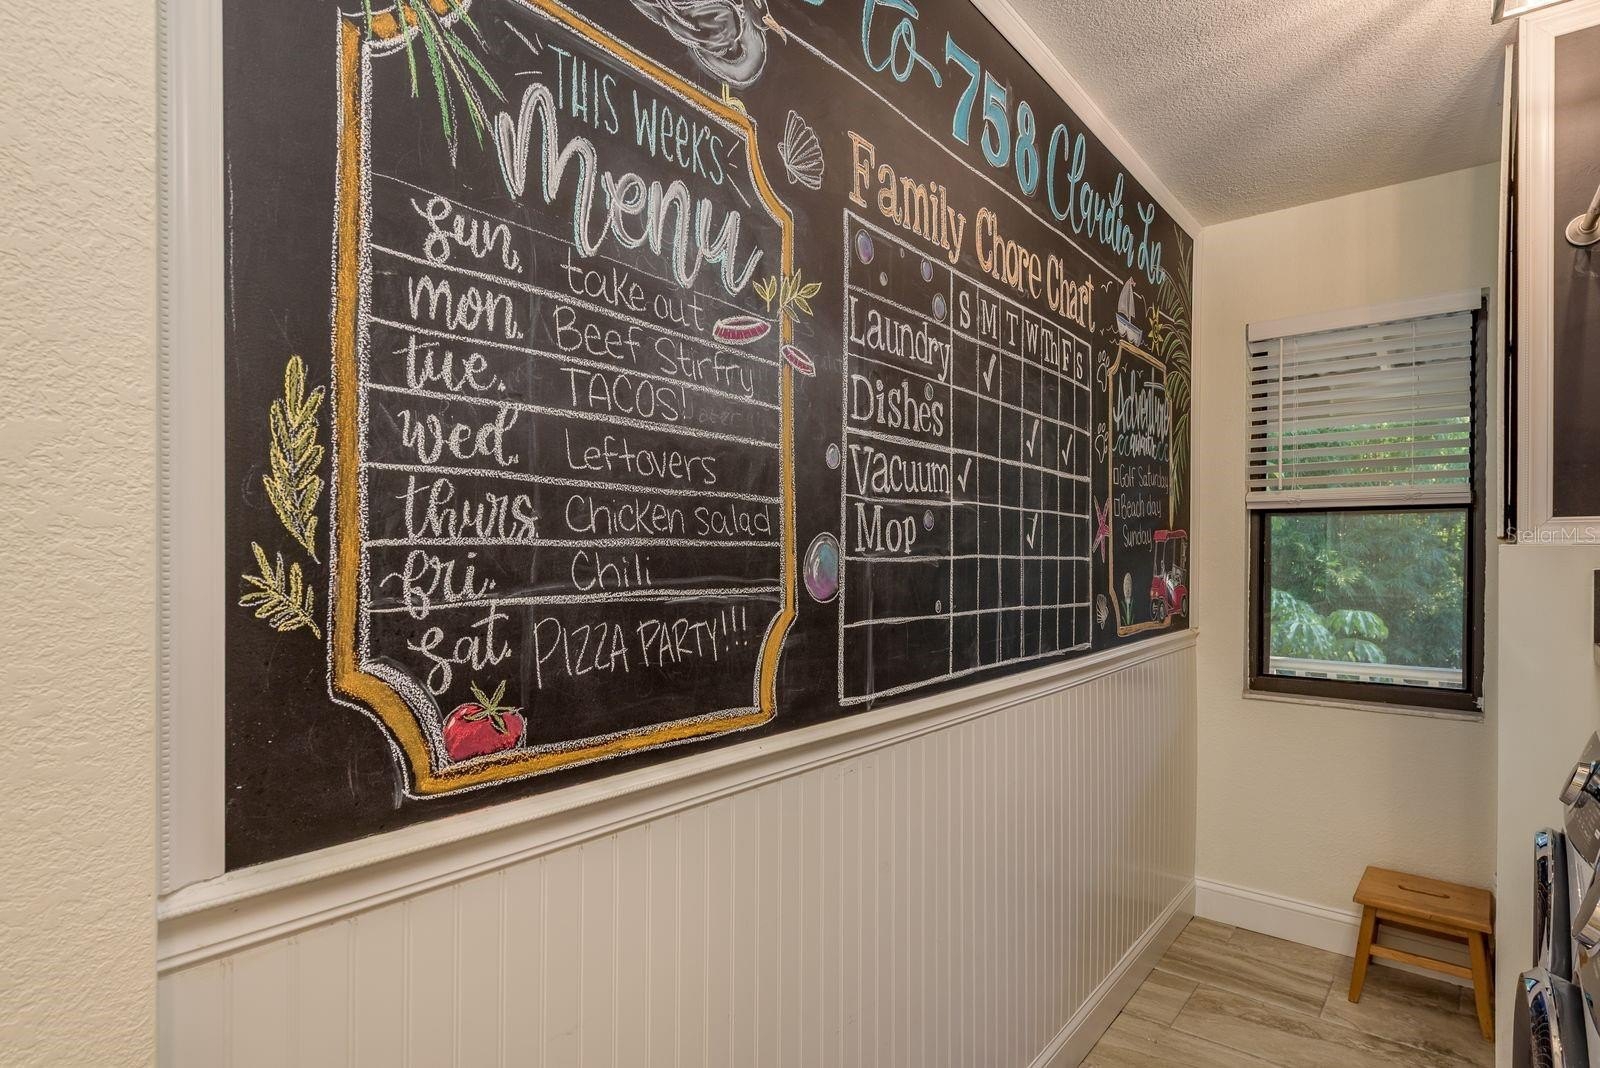 to 758 Claudia Ln
THIS WEEK'S
Menu
Sun. take out
Mon. Beef Stirfry
tue. TACOS!
Wed. Leftovers
thurs Chicken salad
fri. Chili
Sat. PIZZA PARTY!!!
Family Chore Chart
S M T W Th F S
Laundry ✓
Dishes ✓ ✓
Vacuum ✓
Mop ✓
Adventure
awaits
Golf Saturday
Beach day
Sunday
Stellar MLS